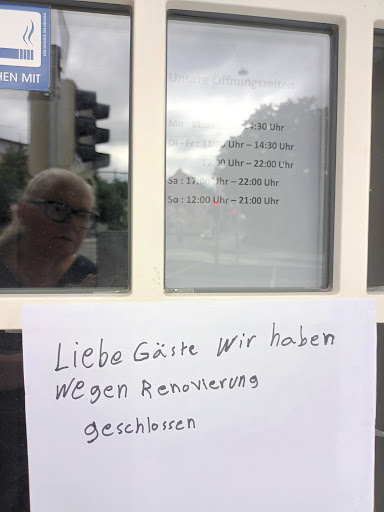 HEN MIT
Unsere Öffnungszeiten
Mo : 11: :30 Uhr
Di - Fr : 11: Uhr – 14:30 Uhr
17:00 Uhr – 22:00 Uhr
Sa : 17:00 Uhr – 22:00 Uhr
So : 12:00 Uhr – 21:00 Uhr
Liebe Gäste wir haben
wegen Renovierung
geschlossen